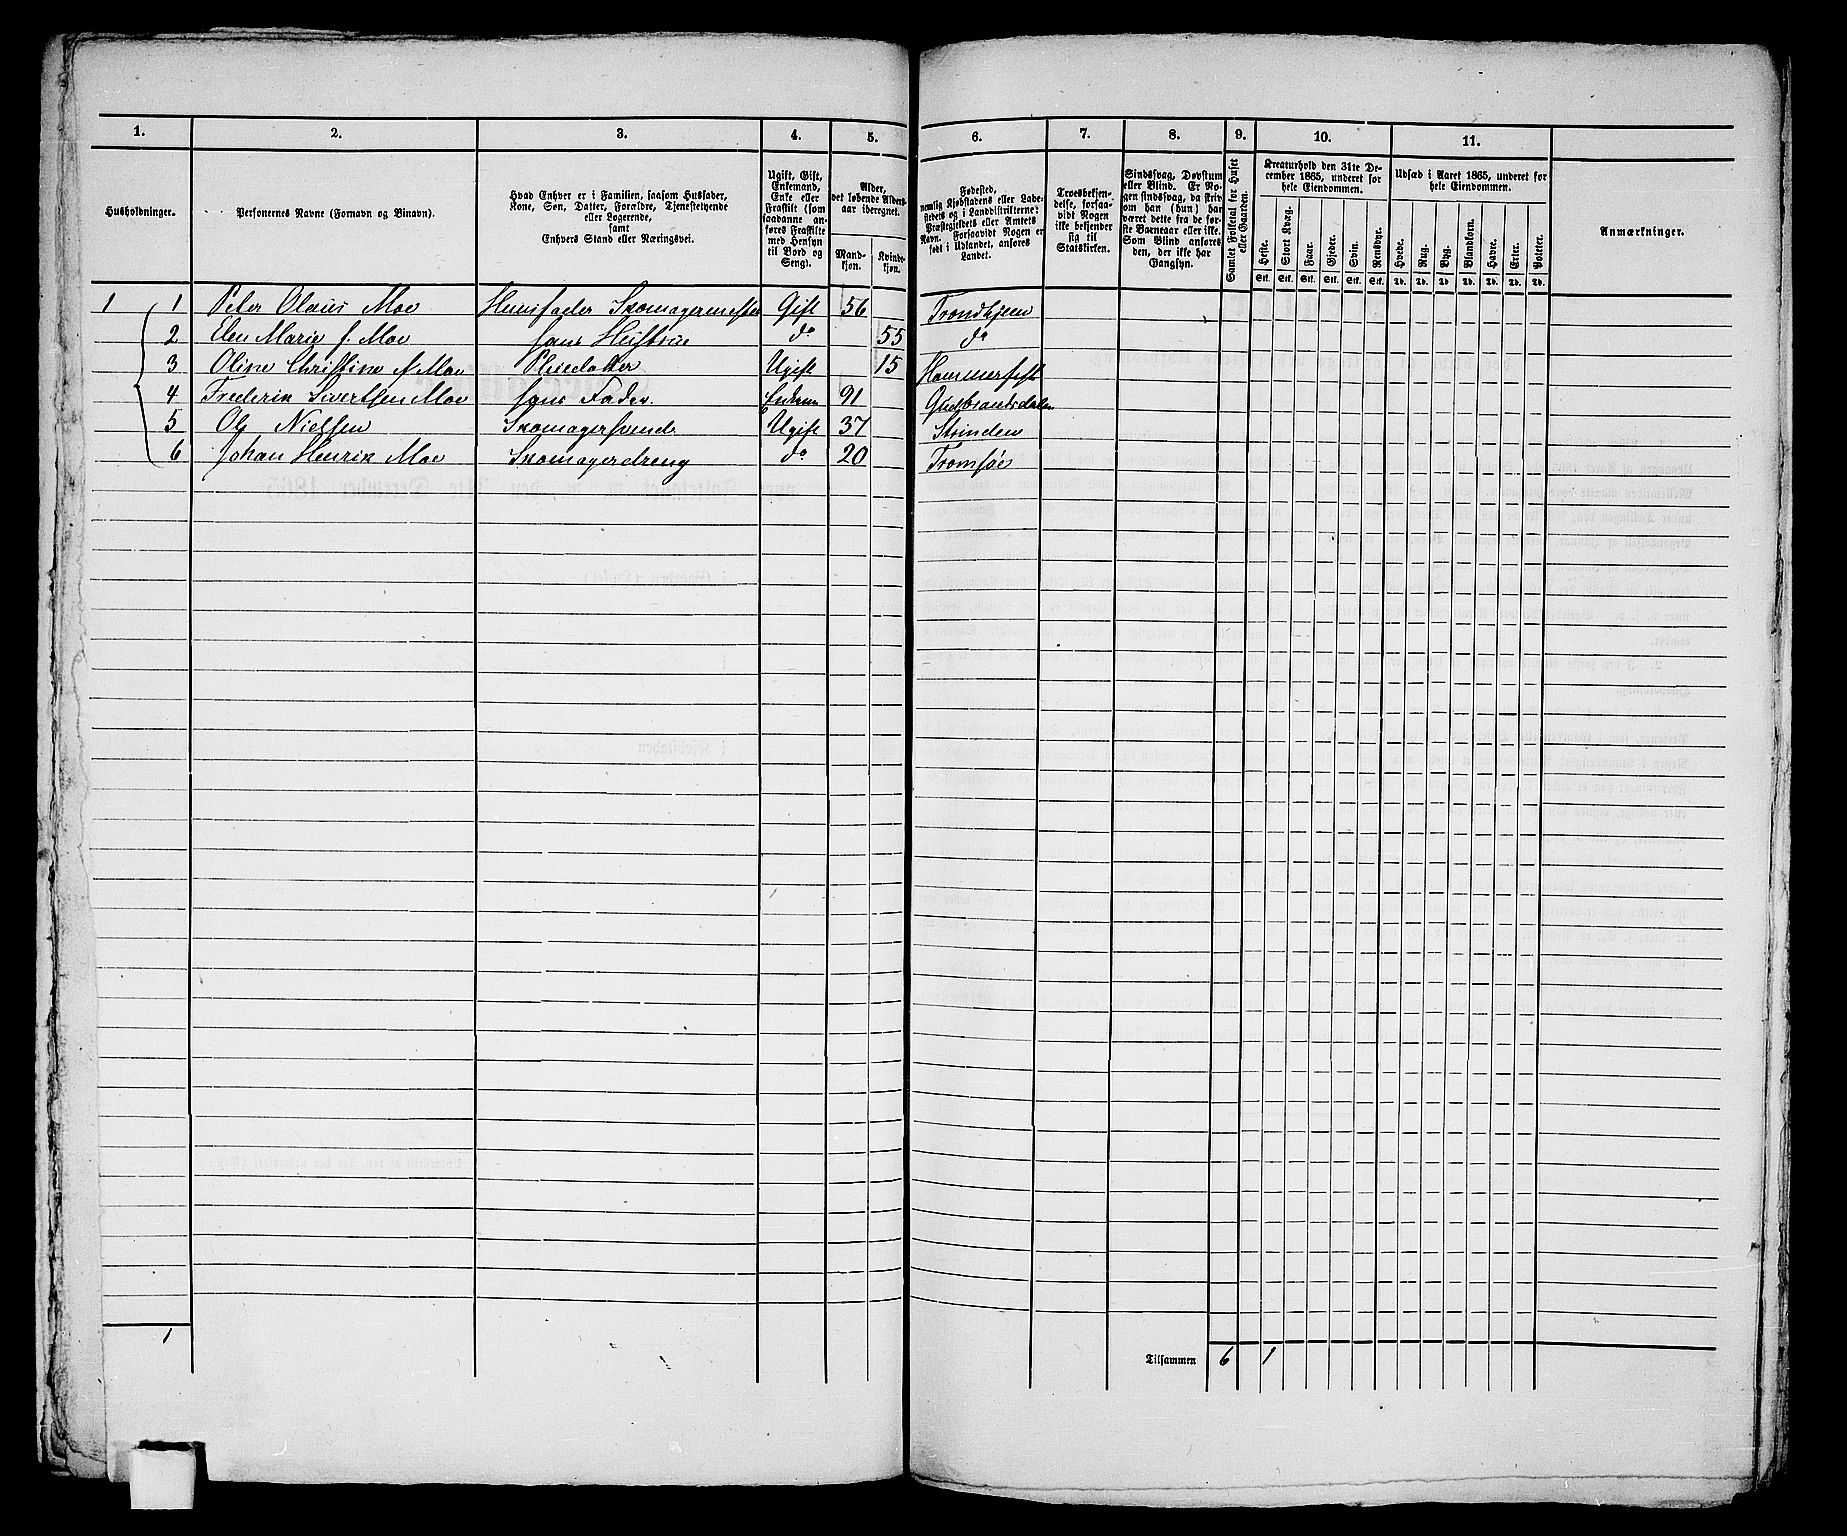 1. 2. 3. 4. 5. 6. 7. 8. 9. 10. 11.
Husholdninger.
Personernes Navne (Fornavn og Binavn).
Hvad Enhver er i Familien, saasom Husfader,
Kone, Søn, Datter, Forældre, Tjenestetyende
eller Logerende,
samt
Enhvers Stand eller Næringsvei.
Ugift, Gift,
Enkemand,
Enke eller
Fraskilt (som
saadanne an-
føres Fraskilte
med Hensyn
til Bord og
Seng).
Alder,
det løbende Alders-
aar iberegnet.
Mand-
kjøn.
Kvinde-
kjøn.
Fødested,
nemlig Kjøbstadens eller Lade-
stedets og i Landdistrikterne:
Præstegjeldets eller Amtets
Navn. Forsaavidt Nogen er
født i Udlandet, anføres
Landet.
Troesbekjen-
delse, forsaa-
vidt Nogen
ikke bekjender
sig til
Statskirken.
Sindssvag, Døvstum
eller Blind. Er No-
gen sindssvag, da skriv
om han (hun) har
været dette fra de før-
ste Barneaar eller ikke.
Som Blind anføres
den, der ikke har
Gangsyn.
Samlet Folketal for Huset
eller Gaarden.
Kreaturhold den 31te De-
cember 1865, underet for
hele Eiendommen.
Heste. Stort Kvæg. Faar. Gjeder. Svin. Rensdyr.
Stk. Stk. Stk. Stk. Stk. Stk.
Udsæd i Aaret 1865, underet for
hele Eiendommen.
Hvede. Rug. Byg. Blandkorn. Havre. Erter. Poteter.
Td. Td. Td. Td. Td. Td. Td.
Anmærkninger.
1 1 Peter Olaus Moe Huusfader Skomagermester Gift 56 Trondhjem
2 Elen Marie f. Moe hans Hustrue do 55 do
3 Oline Christine f Moe Pleiedatter Ugift 15 Hammerfest
4 Frederik Sivertsen Moe hans Fader. Enkem 91 Gudbrandsdalen
5 Ole Nielsen Skomagersvend Ugift 37 Strinden
6 Johan Henrik Moe Skomagerdreng do 20 Tromsøe
1
Tilsammen 6 1